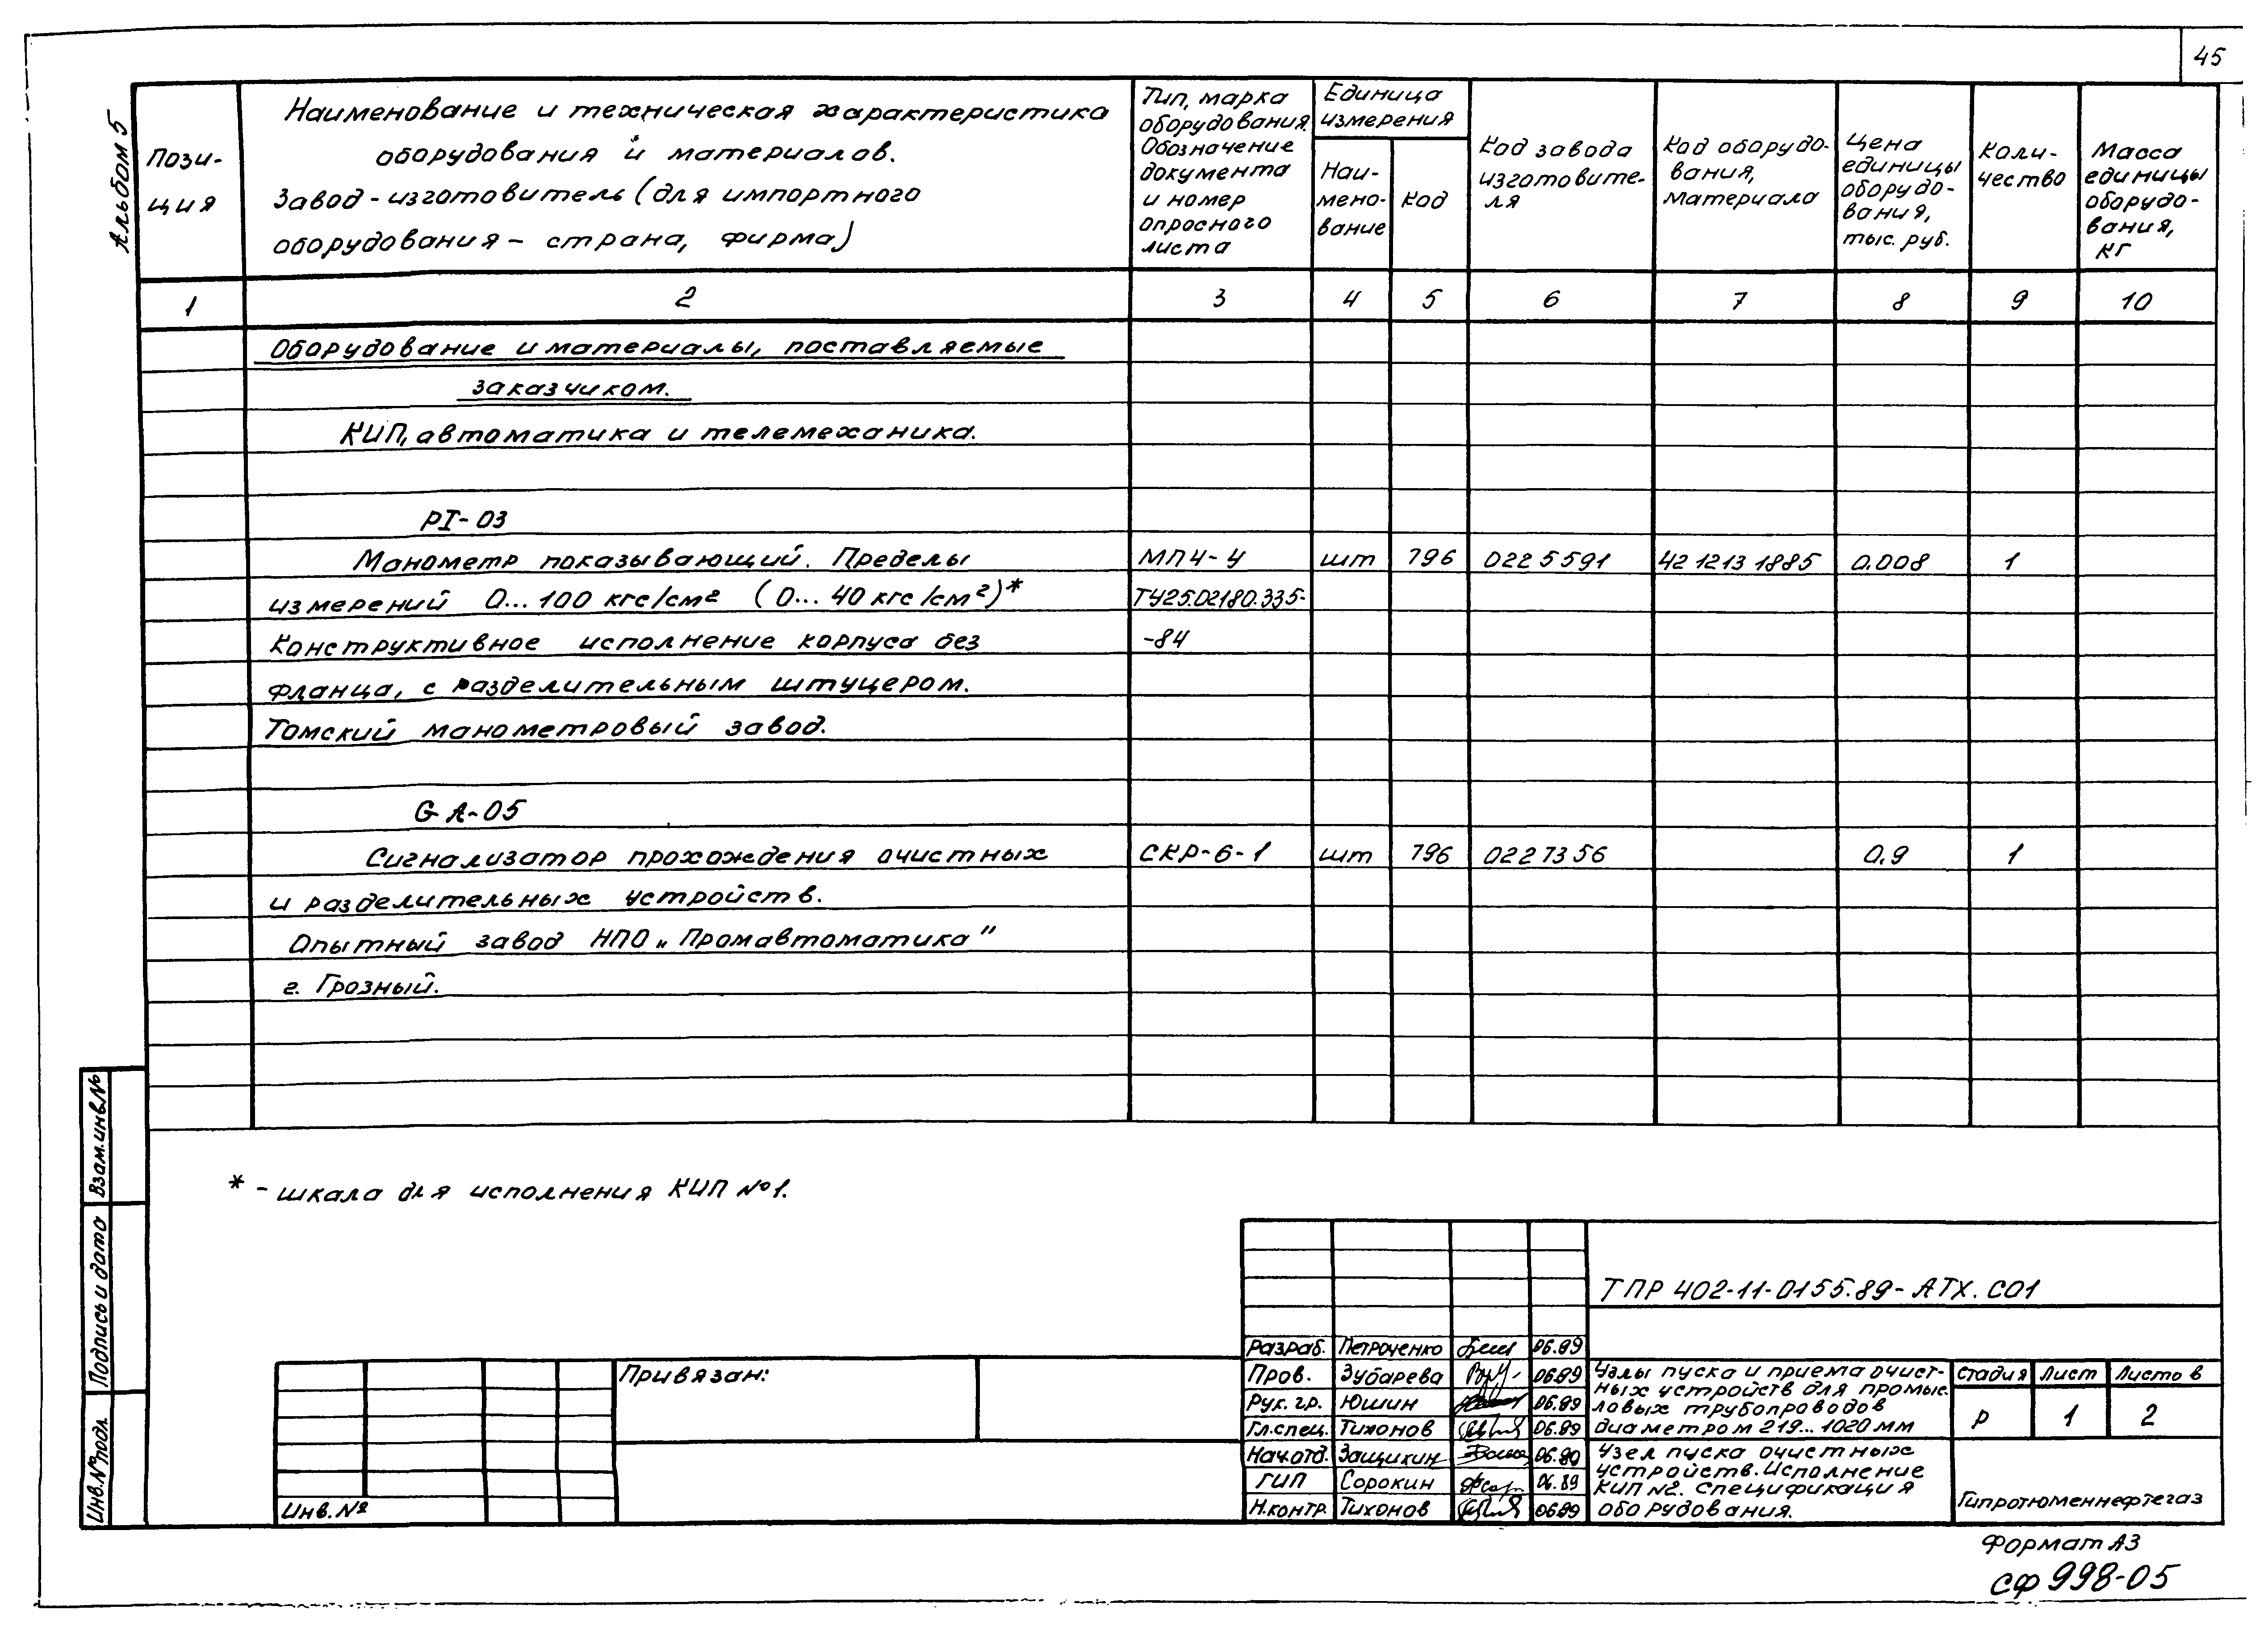 45
Альбом 5
Пози-
ция
Наименование и техническая характеристика
оборудования и материалов.
Завод-изготовитель (для импортного
оборудования - страна, фирма)
Тип, марка
оборудования.
Обозначение
документа
и номер
опросного
листа
Единица
измерения
Наи-
мено-
вание
Код
Код завода
изготовите-
ля
Код оборудо-
вания,
материала
Цена
единицы
оборудо-
вания,
тыс. руб.
Коли-
чество
Масса
единицы
оборудо-
вания,
кг
1 2 3 4 5 6 7 8 9 10
Оборудование и материалы, поставляемые
заказчиком.
КИП, автоматика и телемеханика.
PI-03
Манометр показывающий. Пределы МП4-У шт 796 0225591 42 1213 1885 0.008 1
измерений 0...100 кгс/см² (0... 40 кгс/см²)* ТУ25.02180.335-
Конструктивное исполнение корпуса без -84
фланца, с разделительным штуцером.
Томский манометровый завод.
GA-05
Сигнализатор прохождения очистных СКР-6-1 шт 796 0227356 0,9 1
и разделительных устройств.
Опытный завод НПО „Промавтоматика"
г. Грозный.
* - шкала для исполнения КИП №1.
Взам.инв.№
Подпись и дата
Инв.№подл.
Привязан:
Инв.№
ТПР 402-11-0155.89-АТХ.СО1
Разраб. Петроченко 06.89
Пров. Зубарева 06.89
Рук. гр. Юшин 06.89
Гл.спец. Тихонов 06.89
Нач.отд. Защихин 06.89
ГИП Сорокин 06.89
Н.контр. Тихонов 06.89
Узлы пуска и приема очист-
ных устройств для промыс-
ловых трубопроводов
диаметром 219...1020 мм
Узел пуска очистных
устройств. Исполнение
КИП №2. Спецификация
оборудования.
Стадия Лист Листов
Р 1 2
Гипротюменнефтегаз
Формат А3
СФ 998-05